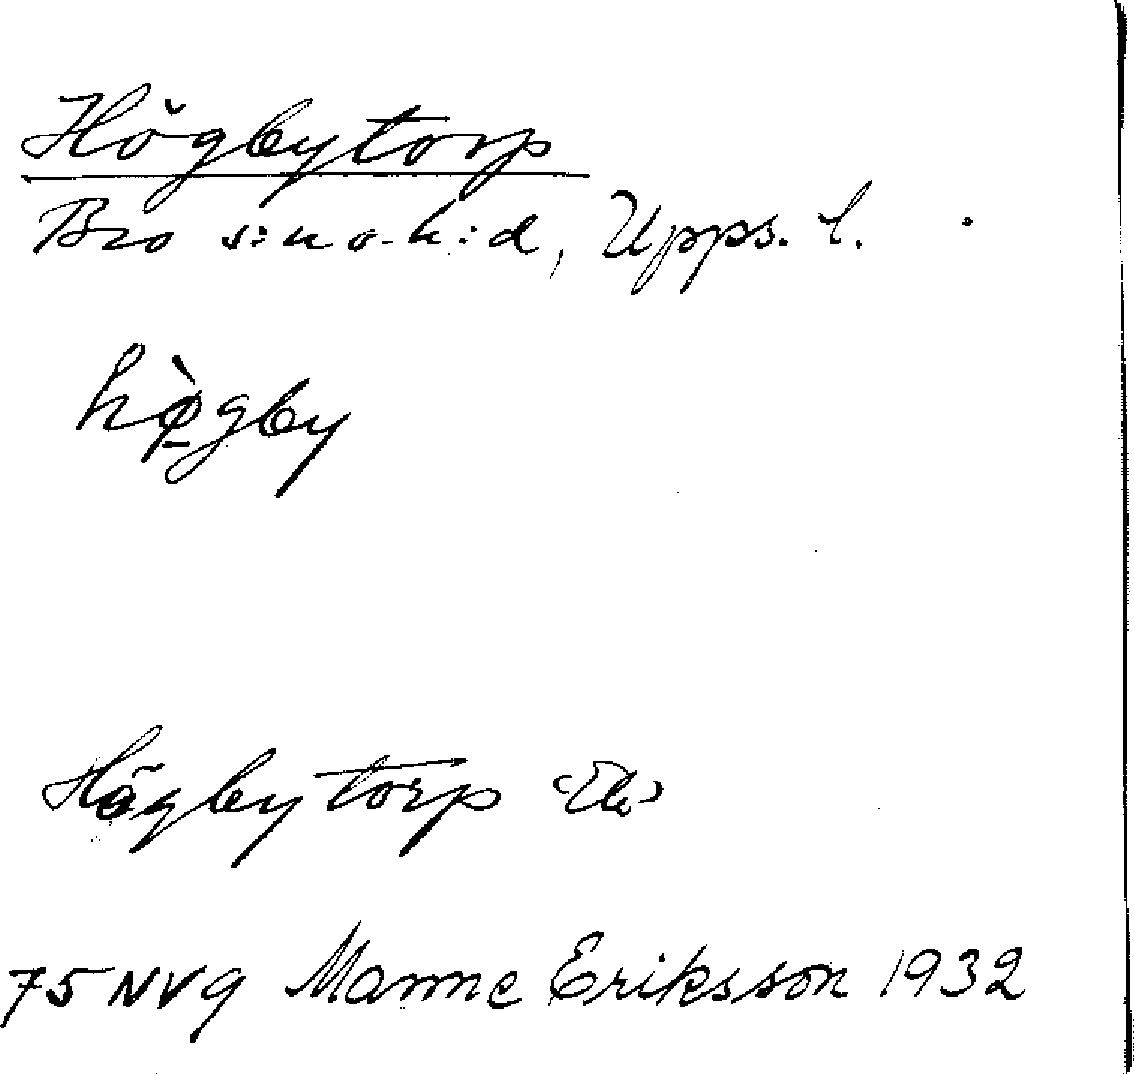 Högbytorp
Bro s:n o. h:d, Upps. l.
hø̀gby
Högbytorp
75 NV g Manne Eriksson 1932